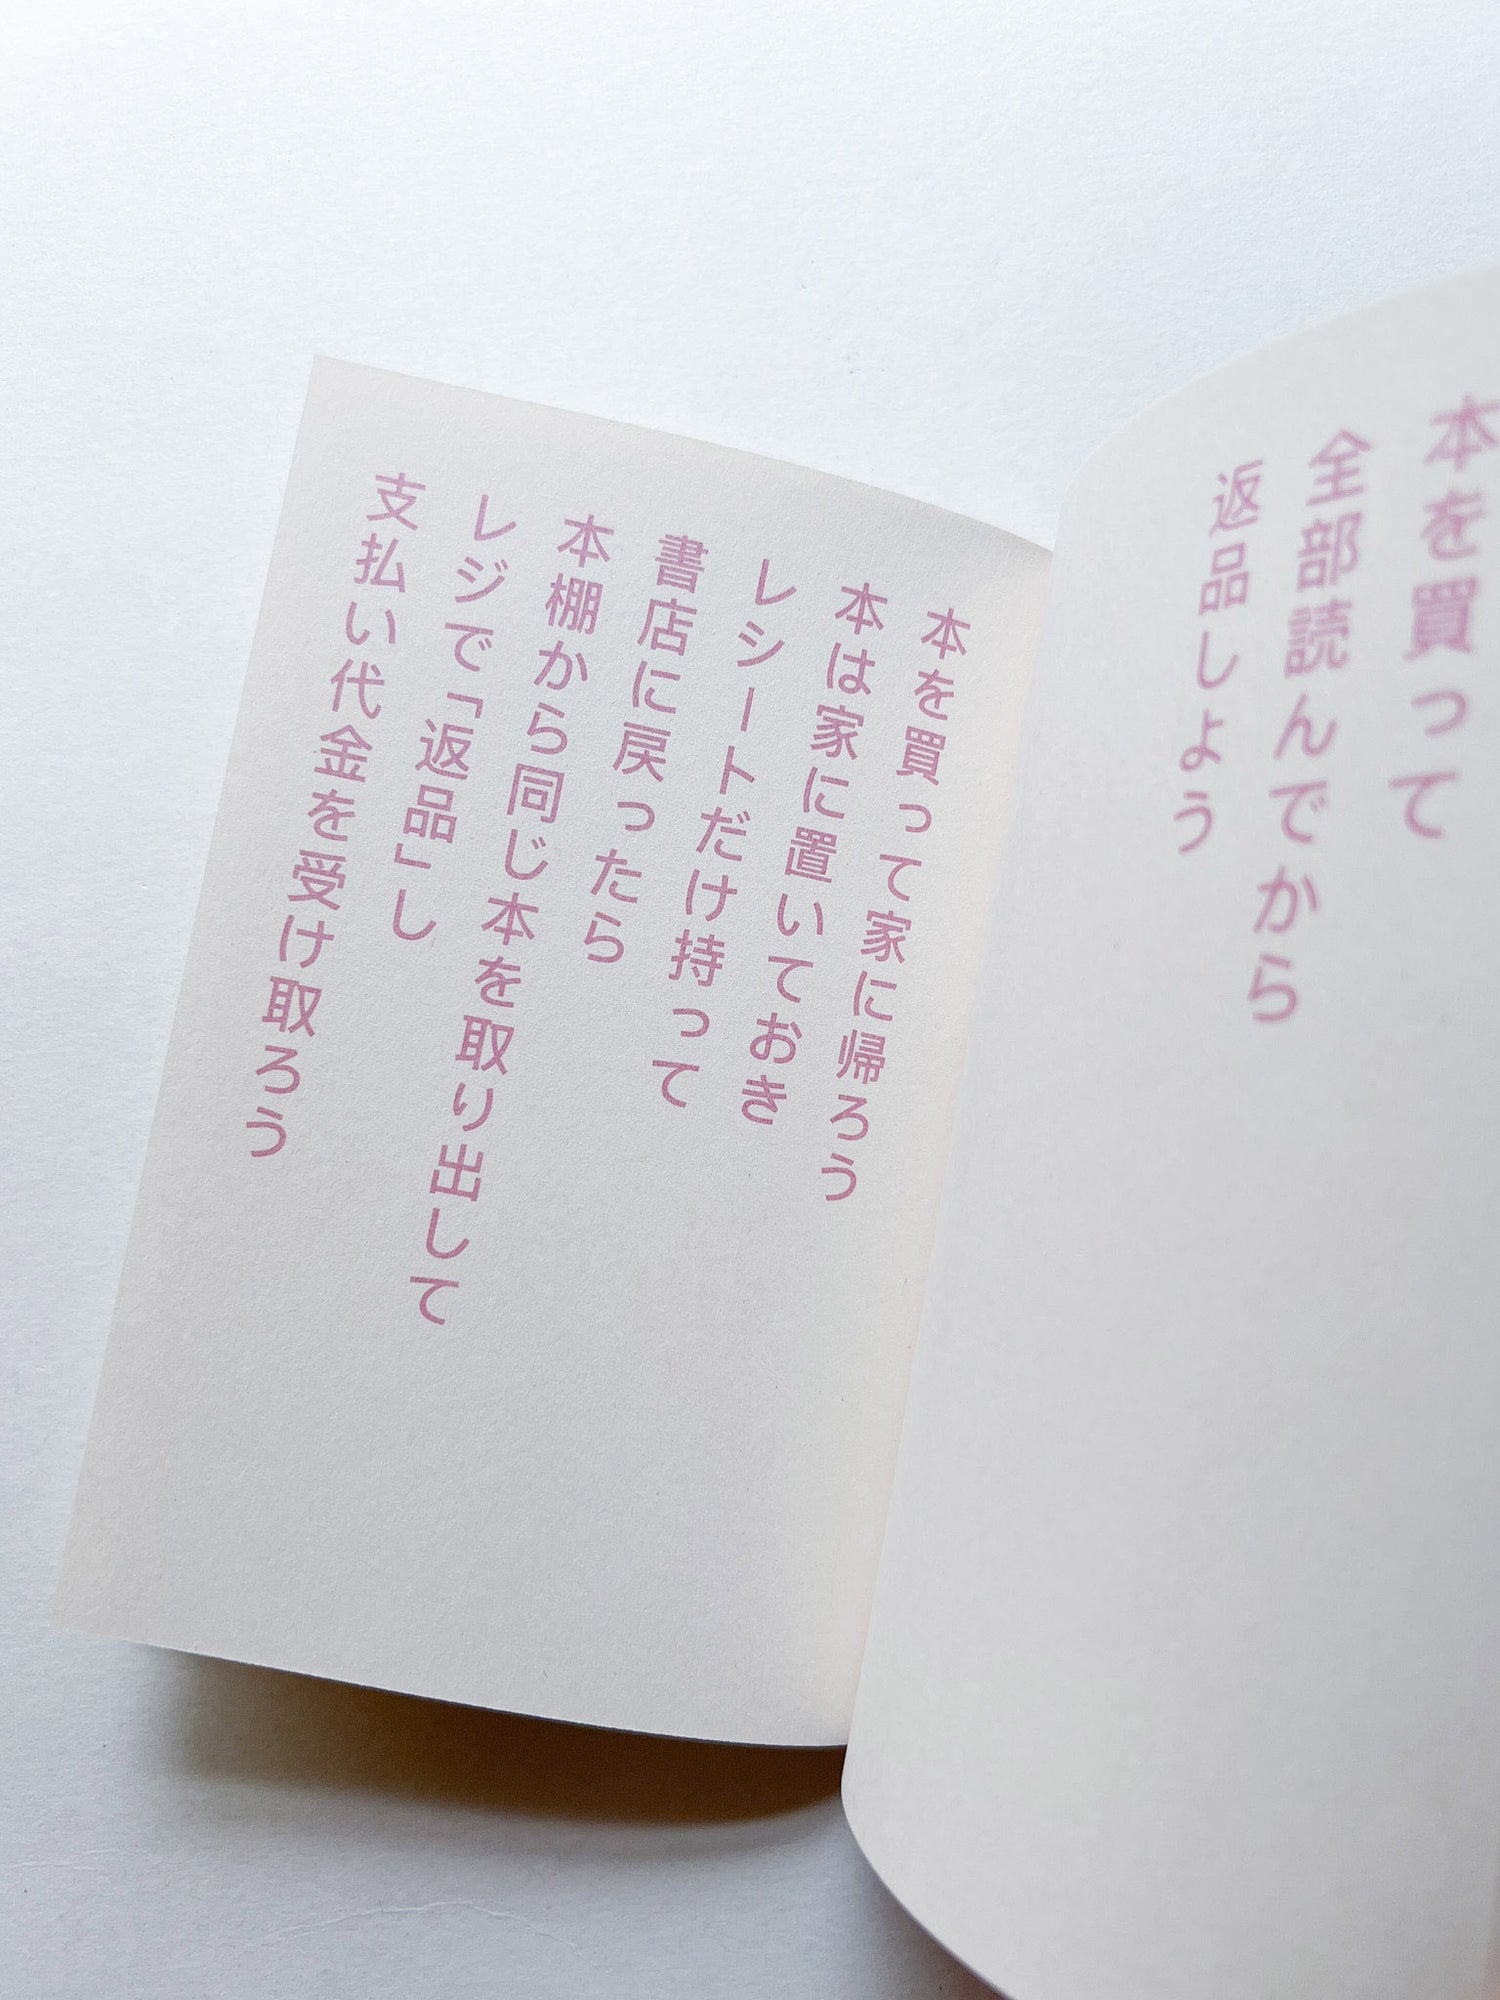 本を買って
全部読んでから
返品しよう
本を買って家に帰ろう
本は家に置いておき
レシートだけ持って
書店に戻ったら
本棚から同じ本を取り出して
レジで「返品」し
支払い代金を受け取ろう